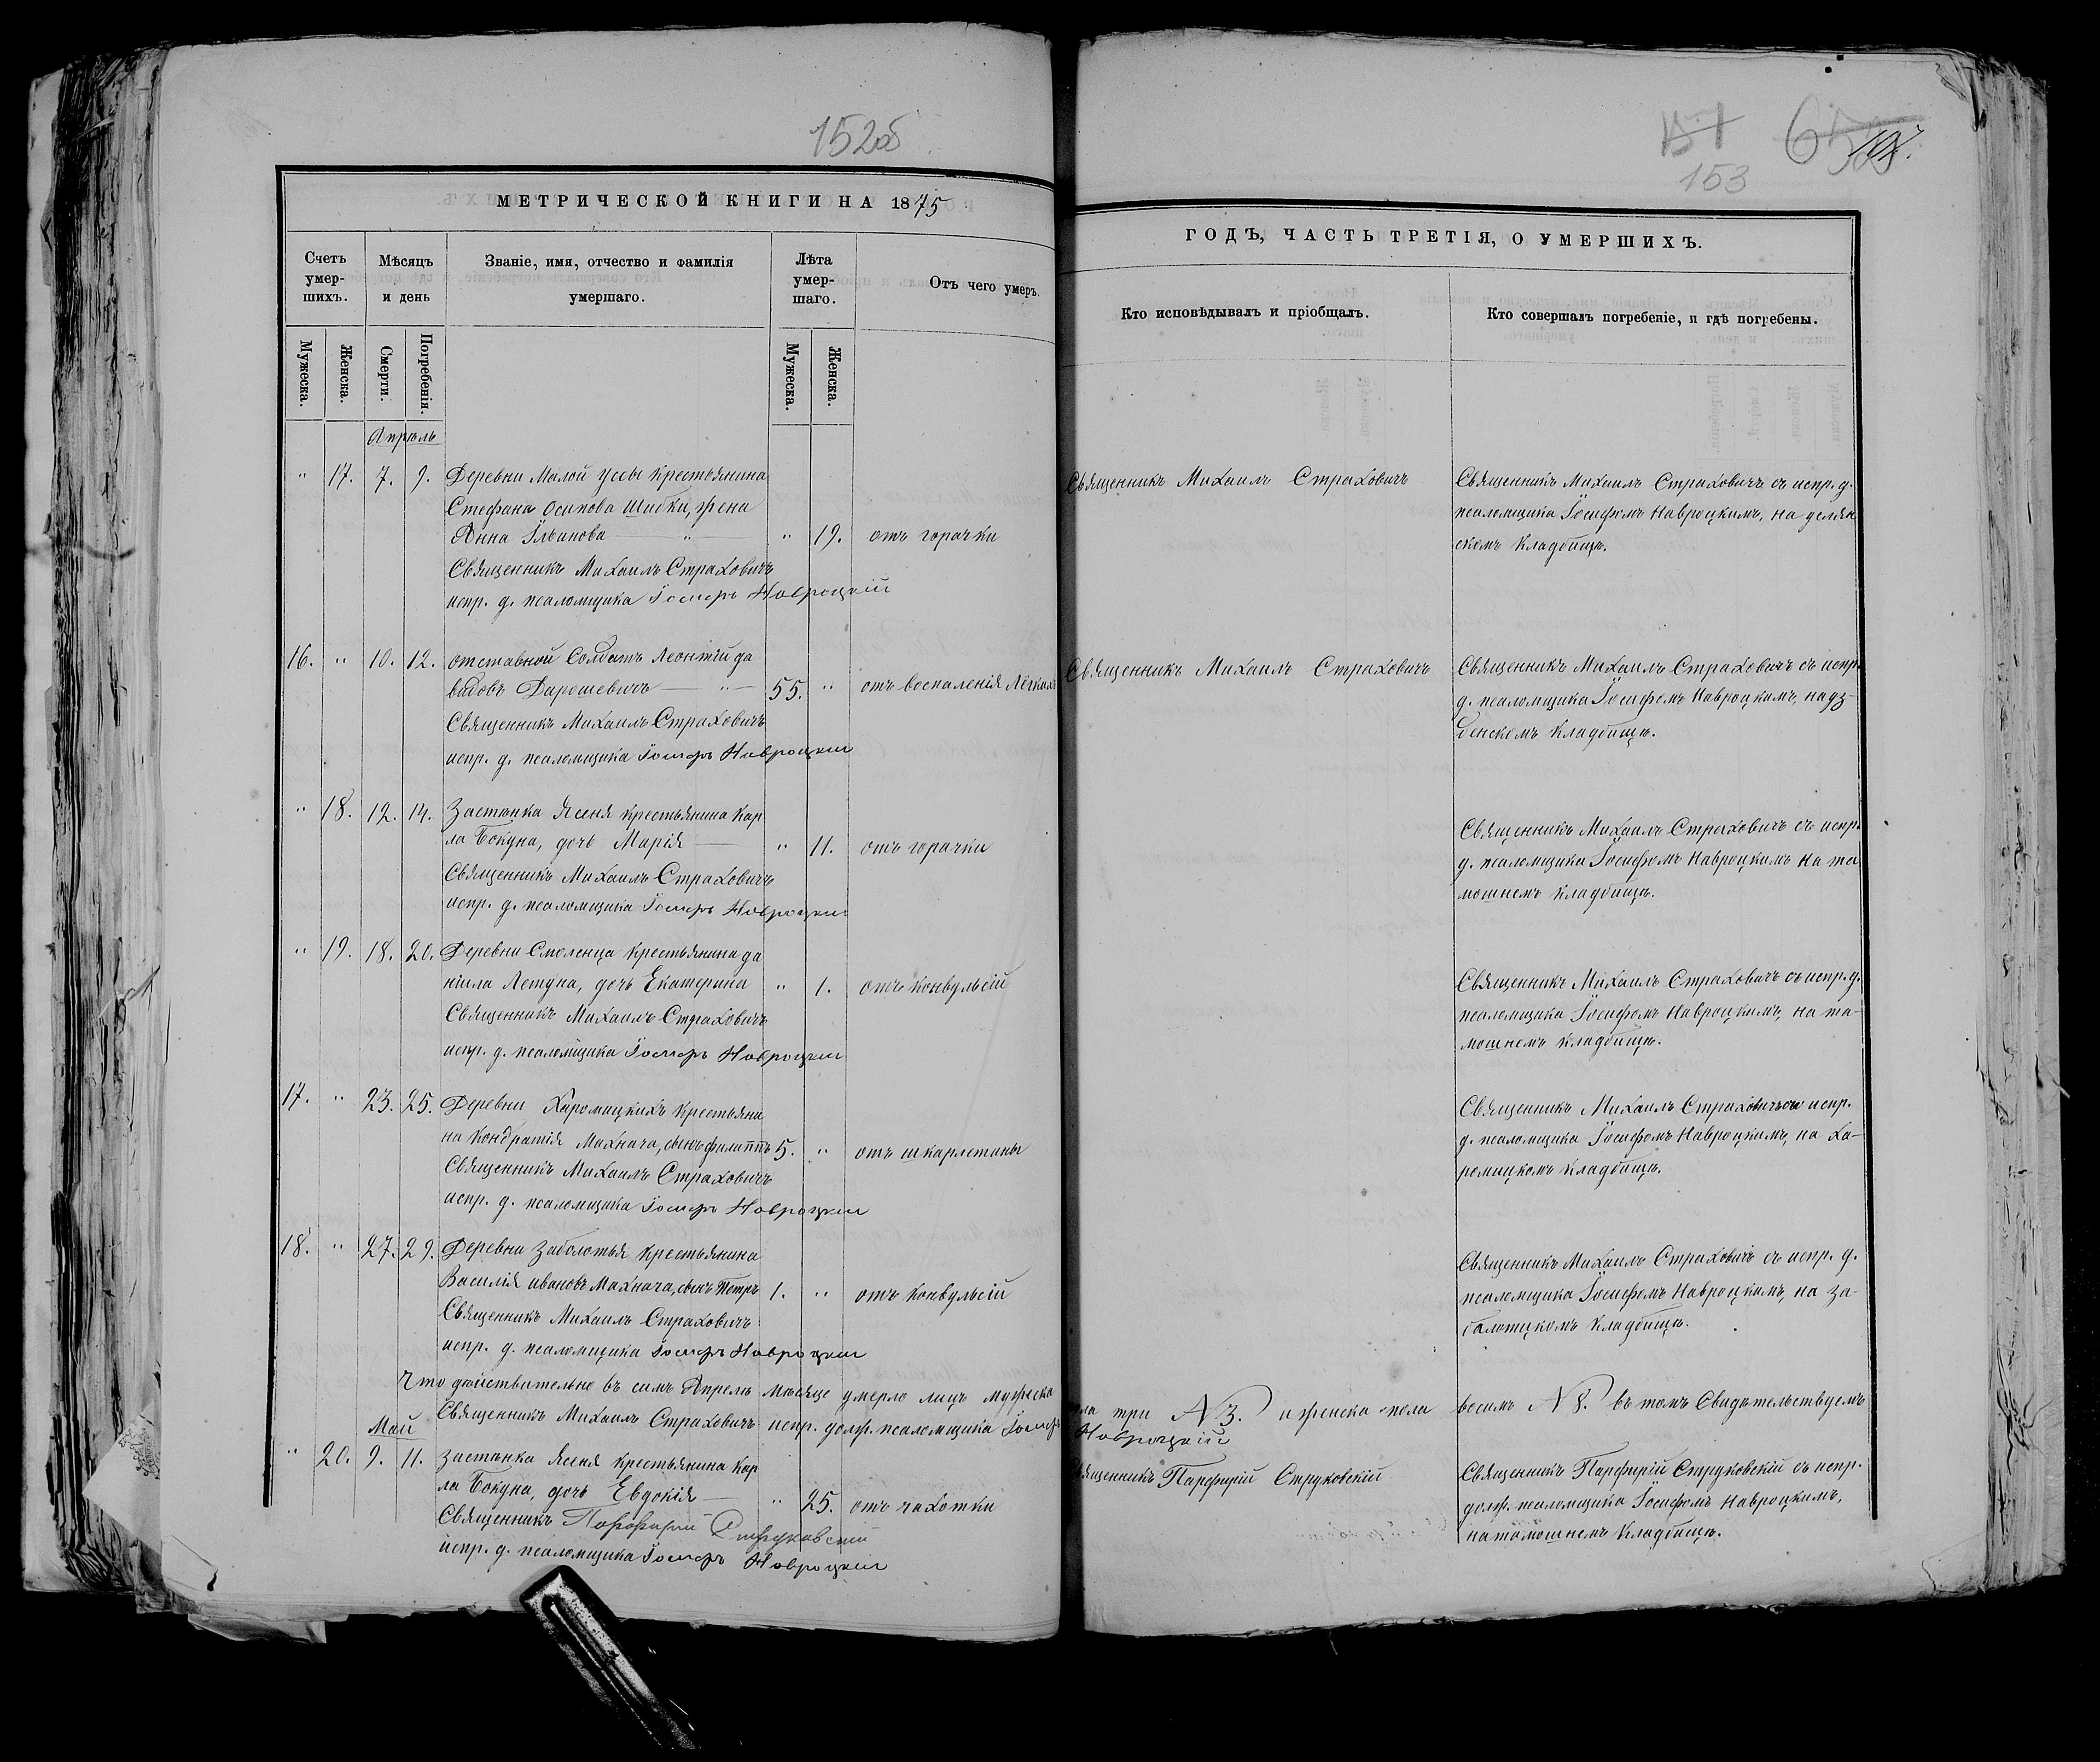 152об
151
153
МЕТРИЧЕСКОЙ КНИГИ НА 1875
ГОДЪ, ЧАСТЬ ТРЕТІЯ, О УМЕРШИХЪ.
Счетъ умер-шихъ.
Мѣсяцъ и день
Званіе, имя, отчество и фамилія умершаго.
Лѣта умер-шаго.
Отъ чего умеръ.
Кто исповѣдывалъ и пріобщалъ.
Кто совершалъ погребеніе, и гдѣ погребены.
Мужеска.
Женска.
Смерти.
Погребенія.
Мужеска.
Женска.
Апрѣль
" 17. 7. 9. Деревни Малой Уссы крестьянина
Стефана Осипова Шибки, жена
Анна Ѵльинова " " 19. отъ горачки
Священникъ Михаилъ Страховичъ
испр. д. псаломщика Іосифъ Навроцкій
Священникъ Михаилъ Страховичъ
Священникъ Михаилъ Страховичъ съ испр. д.
псаломщика Іосифомъ Навроцкимъ, на
скомъ кладбищѣ.
16. " 10. 12. отставной Солдатъ Леонтій да
видовъ Дарошевичъ " 55. " отъ воспаленія Лёгкихъ
Священникъ Михаилъ Страховичъ
испр. д. псаломщика Іосифъ Навроцкій
Священникъ Михаилъ Страховичъ
Священникъ Михаилъ Страховичъ съ испр.
д. псаломщика Іосифомъ Навроцкимъ, на дз-
бенскомъ кладбищѣ.
" 18. 12. 14. Застѣнка Ясеня крестьянина Кар
ла Бокуна, дочь Марія " 11. отъ горачки
Священникъ Михаилъ Страховичъ
испр. д. псаломщика Іосифъ Навроцкій
Священникъ Михаилъ Страховичъ съ испр.
д. псаломщика Іосифомъ Навроцкимъ на та
мошнемъ кладбищѣ.
" 19. 18. 20. Деревни Смоленца крестьянина да
ніила Летуна, дочь Екатерина " 1. отъ конвульсій
Священникъ Михаилъ Страховичъ
испр. д. псаломщика Іосифъ Навроцкій
Священникъ Михаилъ Страховичъ съ испр. д.
псаломщика Іосифомъ Навроцкимъ, на та-
мошнемъ кладбищѣ.
17. " 23. 25. Деревни Харомицкихъ крестьяни
на Кондратія Махнача, сынъ филаппъ 5. " отъ шкарлетаны
Священникъ Михаилъ Страховичъ
испр. д. псаломщика Іосифъ Навроцкій
Священникъ Михаилъ Страховичъ съ испр.
д. псаломщика Іосифомъ Навроцкимъ, на Ха-
ромицкомъ кладбищѣ.
18. " 27. 29. Деревни Заболотья крестьянина
Василія ивановъ Махнача, сынъ Петръ 1. " отъ конвульсій
Священникъ Михаилъ Страховичъ
испр. д. псаломщика Іосифъ Навроцкій
Священникъ Михаилъ Страховичъ съ испр. д.
псаломщика Іосифомъ Навроцкимъ, на за-
балотцкомъ кладбищѣ.
Что дѣйствительно въ семъ Апрелѣ мѣсяце умерло лицъ мужеска пола три N 3. и женска пола восимъ N 8. въ томъ Свидѣтельствуемъ
Священникъ Михаилъ Страховичъ испр. долж. псаломщика Іосифъ Навроцкій
Май
" 20. 9. 11. Застѣнка Ясеня крестьянина Кар
ла Бокуна, дочь Евдокія " 25. отъ чахотки
Священникъ Порфирій Струковскій
испр. д. псаломщика Іосифъ Навроцкій
Священникъ Парфирій Струковскій
Священникъ Парфирій Струковскій съ испр.
долж. псаломщика Іосифомъ Навроцкимъ,
на тамошнемъ кладбищѣ.